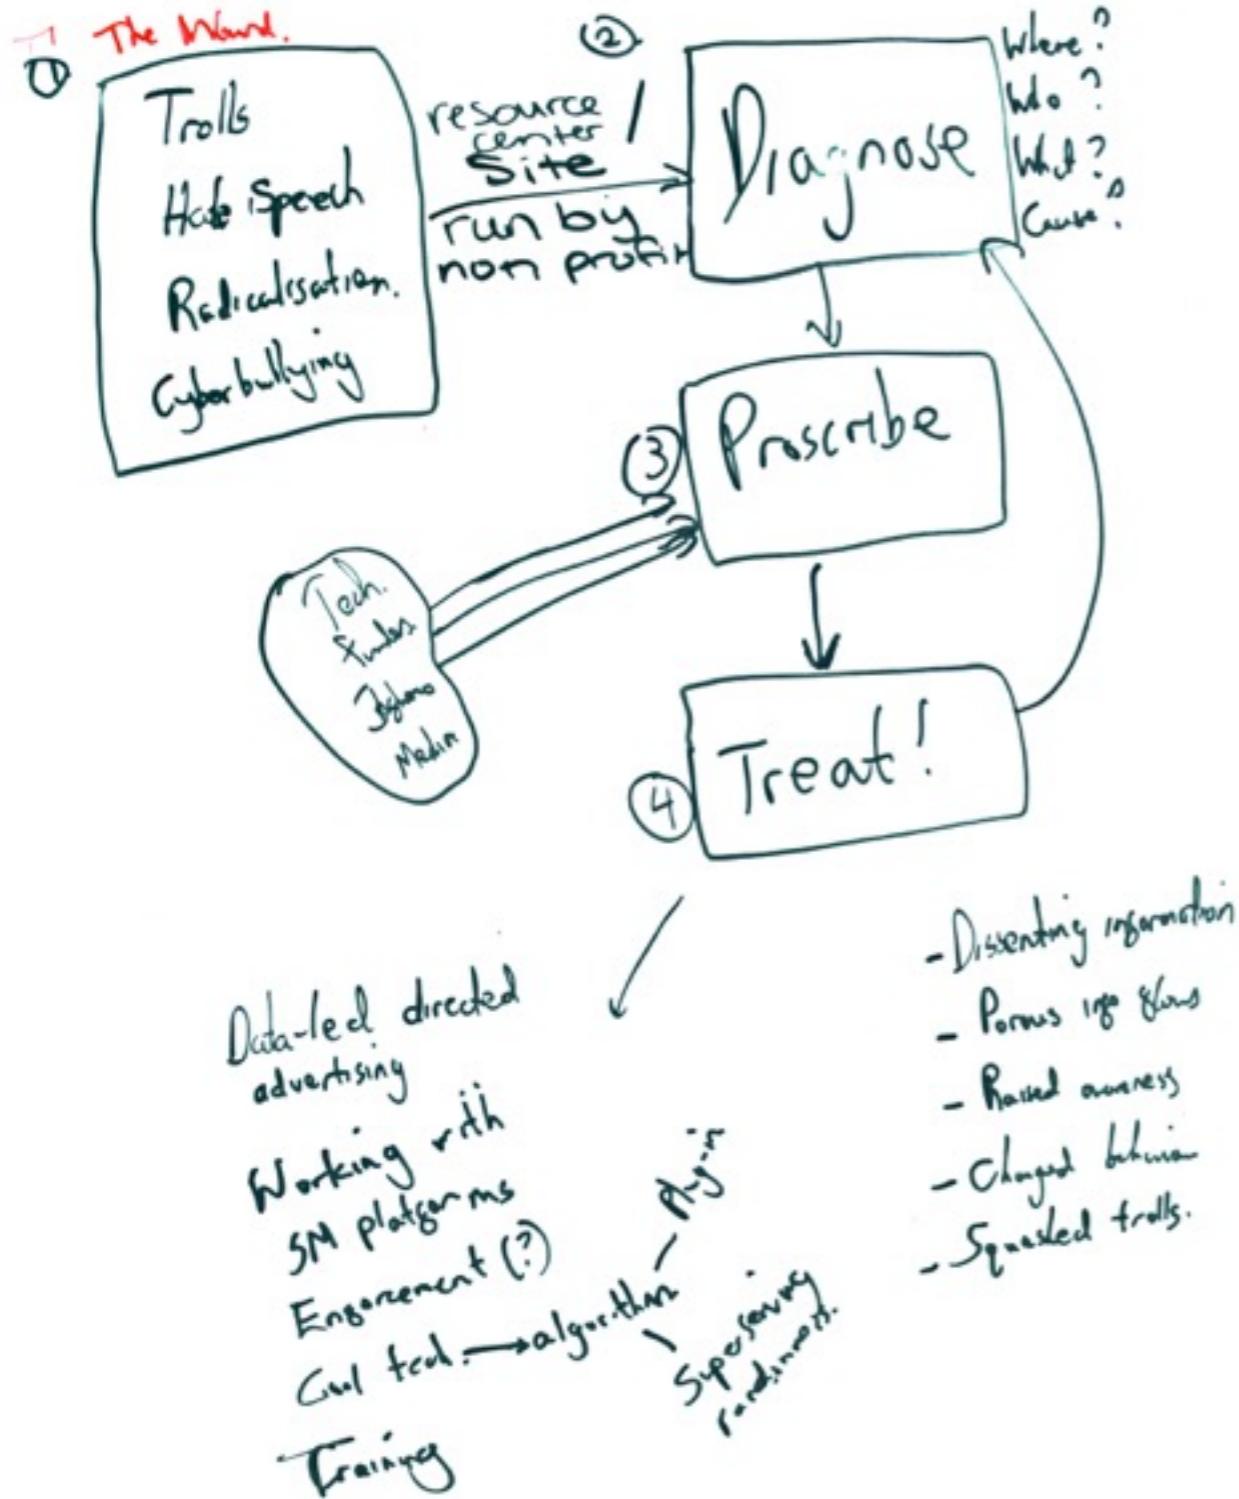 The Wound.
①
Trolls
Hate Speech
Radicalisation.
Cyberbullying
resource
center
Site
run by
non profit
②
Diagnose
Where?
Who?
What?
Cause?
③
Proscribe
Tech.
funders
Media
④
Treat!
Data-led directed
advertising
Working with
SM platforms
Enforcement (?)
Cool tech. → algorithm
Plug-in
Superserving
randomness.
Training
- Dissenting information
- Porous info flows
- Raised awareness
- Changed behaviour
- Squashed trolls.